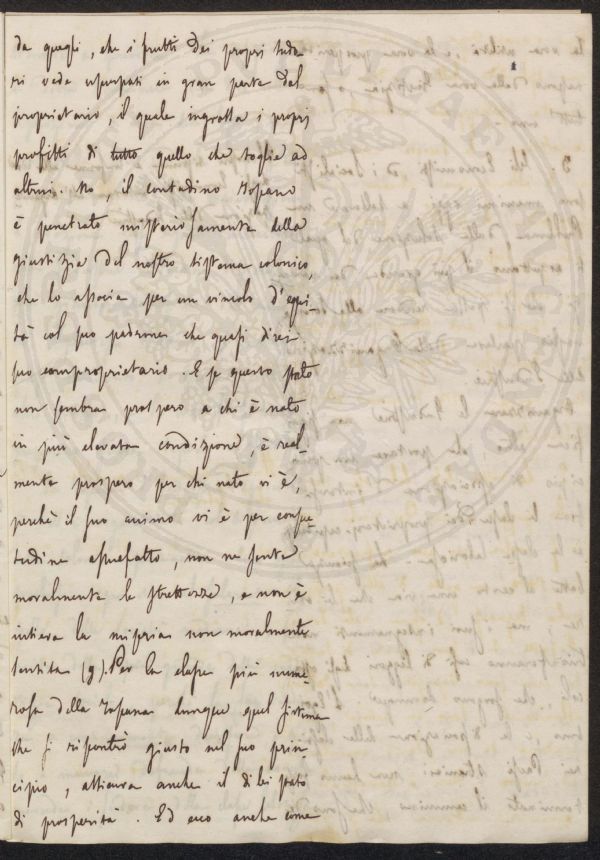 da quegli, che i frutti dei propri sudo-
ri vede usurpati in gran parte dal
proprietario, il quale ingrassa i propri
profitti di tutto quello che toglie ad
altrui. No, il contadino Toscano
è penetrato misteriosamente della
giustizia del nostro sistema colonico,
che lo associa per un vincolo d'equi-
tà col suo padrone che quasi direi
suo comproprietario. E se questo stato
non sembra prospero a chi è nato
in più elevata condizione, è real-
mente prospero per chi nato vi è,
perchè il suo animo vi è per consue-
tudine assuefatto, non ne sente
moralmente le strettezze, e non è
intiera la miseria non moralmente
sentita (9). Per la classe più nume-
rosa della Toscana dunque quel sistema
che si riscontrò giusto nel suo prin-
cipio, assicura anche il di lei stato
di prosperità. Ed ecco anche come